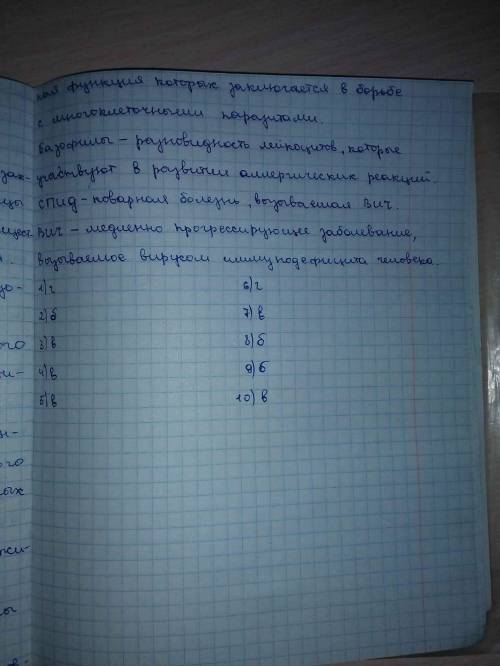 ная функция которых заключается в борьбе
с многоклеточными паразитами.
Базофилы – разновидность лейкоцитов, которые
зак- участвуют в развитии аллергических реакций.
цы СПИД – коварная болезнь, вызываемая ВИЧ.
ВИЧ – медленно прогрессирующее заболевание,
вызываемое вирусом иммунодефицита человека.
1) г 6) г
2) б 7) в
3) в 8) б
4) в 9) б
5) в 10) в